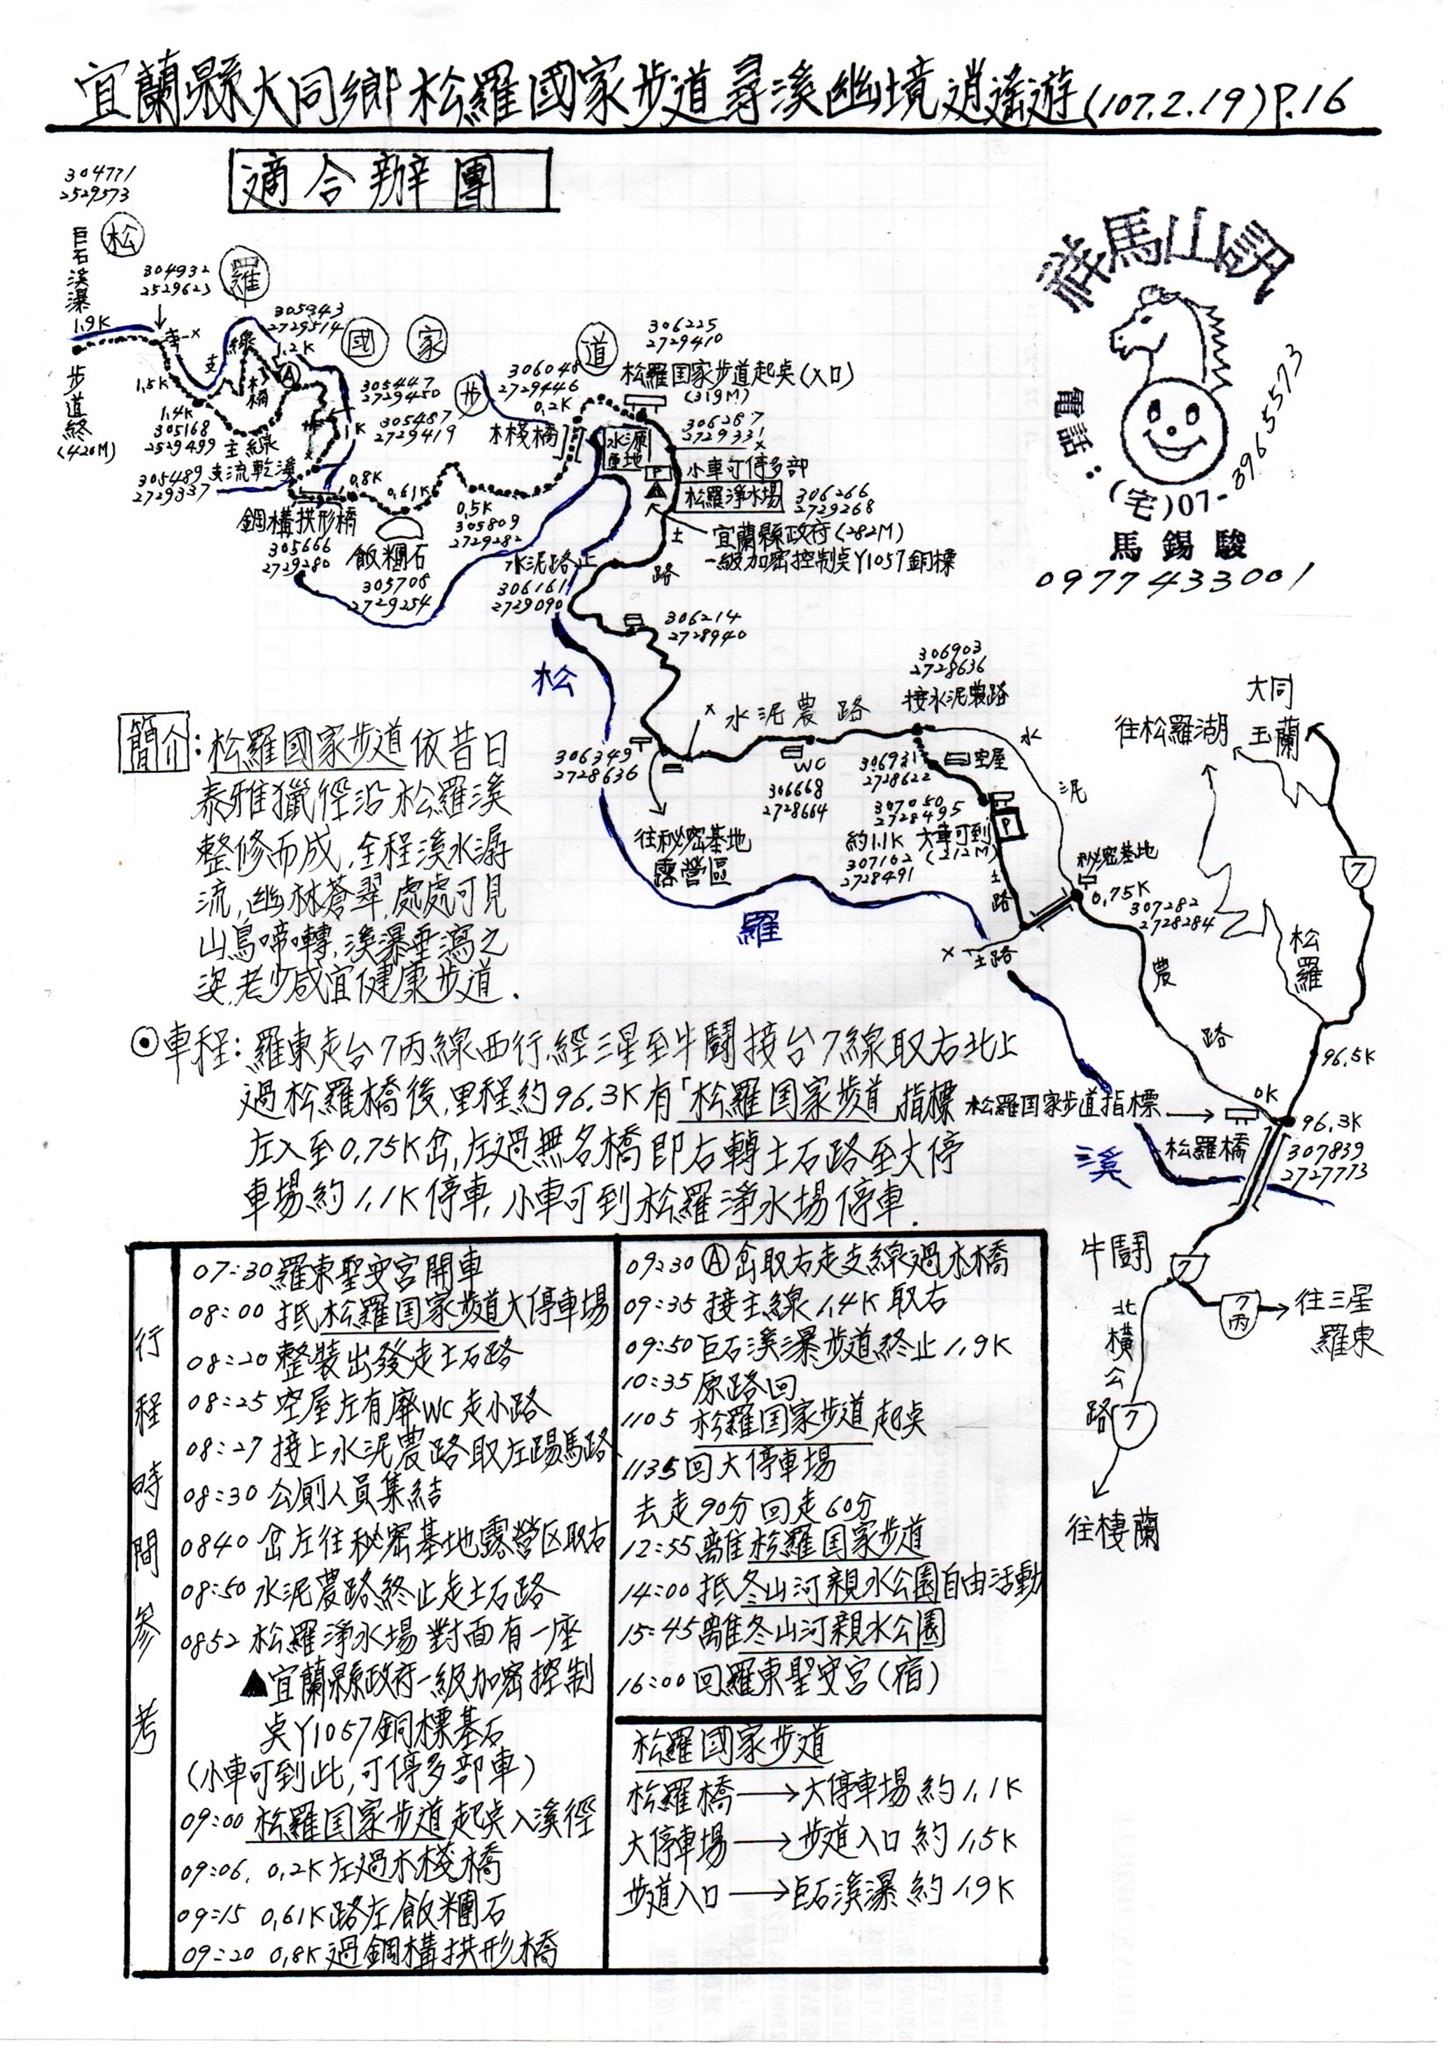 宜蘭縣大同鄉松羅國家步道尋溪幽境逍遙遊(107.2.19)P.16
適合辦團
祥馬山訊
電話:(宅)07-3965573
馬錫駿
0977433001
304771
2529573
松
羅
國
家
步
道
巨石溪瀑
1.9K
步道終
(420M)
304932
2529623
支線
木橋
305343
2729514
1.2K
A
1.5K
1.4K
305168
2529499
主線
305489
2729337
支流乾溪
1K
305447
2729450
305487
2729419
鋼構拱形橋
305666
2729280
0.8K
0.61K
飯糰石
305708
2729254
0.5K
305809
2729282
306048
2729446
0.2K
木棧橋
水源重地
306225
2729410
松羅国家步道起桌(入口)
(319M)
306287
2729331
P
小車可停多部
松羅淨水場
306266
2729268
宜蘭縣政府(282M)
一級加密控制桌Y1057銅標
土路
水泥路止
306161
2729090
306214
2728940
松
羅
溪
306349
2728636
往秘密基地
露營區
水泥農路
WC
306668
2728664
306903
2728636
接水泥農路
306931
2728622
空屋
307050
2728495
約1.1K 大車可到
(212M)
307102
2728491
P
土路
土路
水泥農路
秘密基地
0.75K
307282
2728284
往松羅湖
大同
玉蘭
7
松羅
96.5K
0K
松羅国家步道指標
96.3K
307839
2727773
松羅橋
牛鬪
7
7丙
往三星
羅東
北橫公路
7
往棲蘭
簡介:松羅國家步道依昔日
泰雅獵徑沿松羅溪
整修而成,全程溪水潺
流,幽林蒼翠,處處可見
山鳥啼囀,溪瀑垂瀉之
姿,老少咸宜健康步道.
⊙車程:羅東走台7丙線西行,經三星至牛鬪接台7線取右北上
過松羅橋後,里程約96.3K有「松羅国家步道」指標
左入至0.75K岔,左過無名橋即右轉土石路至大停
車場約1.1K停車,小車可到松羅淨水場停車.
行程時間參考
07:30羅東聖安宮開車
08:00 抵松羅国家步道大停車場
08:20 整裝出發走土石路
08:25 空屋左有廢WC走小路
08:27 接上水泥農路取左踢馬路
08:30 公廁人員集結
0840 岔左往秘密基地露營区取右
08:50 水泥農路終止走土石路
0852 松羅淨水場對面有一座
▲宜蘭縣政府一級加密控制
桌Y1057銅標基石
(小車可到此,可停多部車)
09:00 松羅国家步道起桌入溪徑
09:06, 0.2K左過木棧橋
09:15 0.61K路左飯糰石
09:20 0.8K過鋼構拱形橋
09:30 Ⓐ岔取右走支線過木橋
09:35 接主線1.4K取右
09:50 巨石溪瀑步道終止1.9K
10:35 原路回
1105 松羅国家步道起桌
1135回大停車場
去走90分回走60分
12:55離松羅国家步道
14:00 抵冬山河親水公園自由活動
15:45離冬山河親水公園
16:00回羅東聖安宮(宿)
松羅國家步道
松羅橋→大停車場約1.1K
大停車場→步道入口約1.5K
步道入口→巨石溪瀑約1.9K